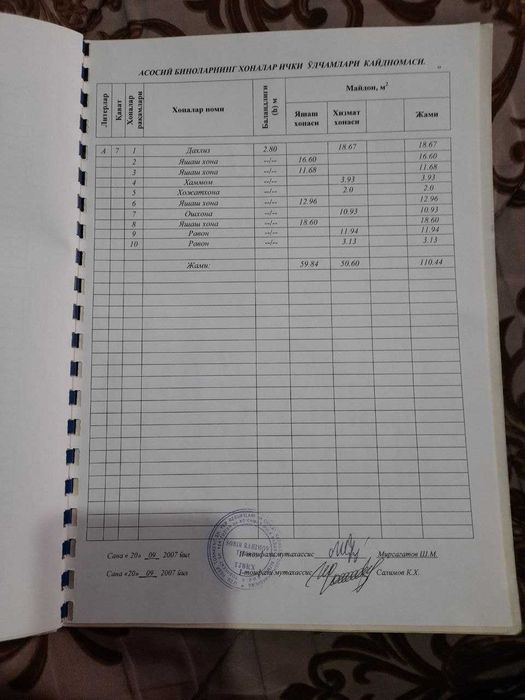 АСОСИЙ БИНОЛАРНИНГ ХОНАЛАР ИЧКИ ЎЛЧАМЛАРИ КАЙДНОМАСИ.
Литерлар Қават Хоналар рақамлари Хоналар номи Баландлиги (h) м Майдон, м²
Яшаш хонаси Хизмат хонаси Жами
А 7 1 Дахлиз 2.80 18.67 18.67
2 Яшаш хона --//-- 16.60 16.60
3 Яшаш хона --//-- 11.68 11.68
4 Хаммом --//-- 3.93 3.93
5 Хожатхона --//-- 2.0 2.0
6 Яшаш хона --//-- 12.96 12.96
7 Ошхона --//-- 10.93 10.93
8 Яшаш хона --//-- 18.60 18.60
9 Равон --//-- 11.94 11.94
10 Равон --//-- 3.13 3.13
Жами: 59.84 50.60 110.44
Сана « 20» _09_ 2007 йил II-тоифали мутахассис Мирсагатов Ш.М.
Сана «20»_09_ 2007 йил I-тоифали мутахассис Салимов К.Х.